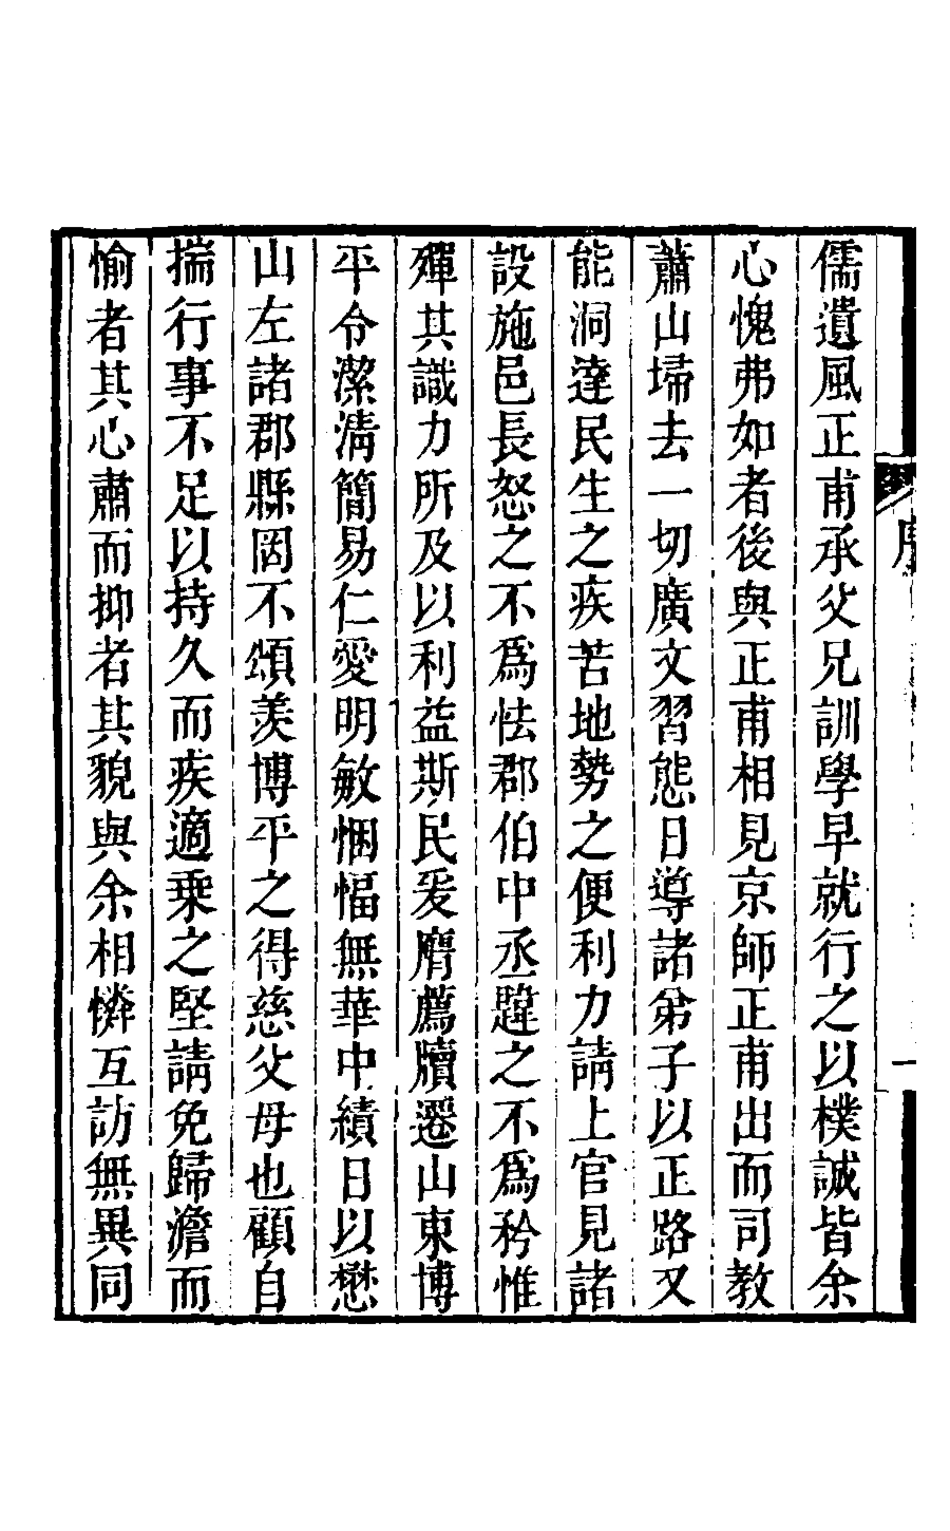 儒遺風正甫承父兄訓學早就行之以樸誠皆余
心愧弗如者後與正甫相見京師正甫出而司教
蕭山埽去一切廣文習態日導諸弟子以正路又
能洞達民生之疾苦地勢之便利力請上官見諸
設施邑長怒之不爲怯郡伯中丞韙之不爲矜惟
殫其識力所及以利益斯民爰膺薦牘遷山東博
平令潔淸簡易仁愛明敏悃愊無華中績日以懋
山左諸郡縣罔不頌羨博平之得慈父母也顧自
揣行事不足以持久而疾適乘之堅請免歸澹而
愉者其心肅而抑者其貌與余相憐互訪無異同
序
一